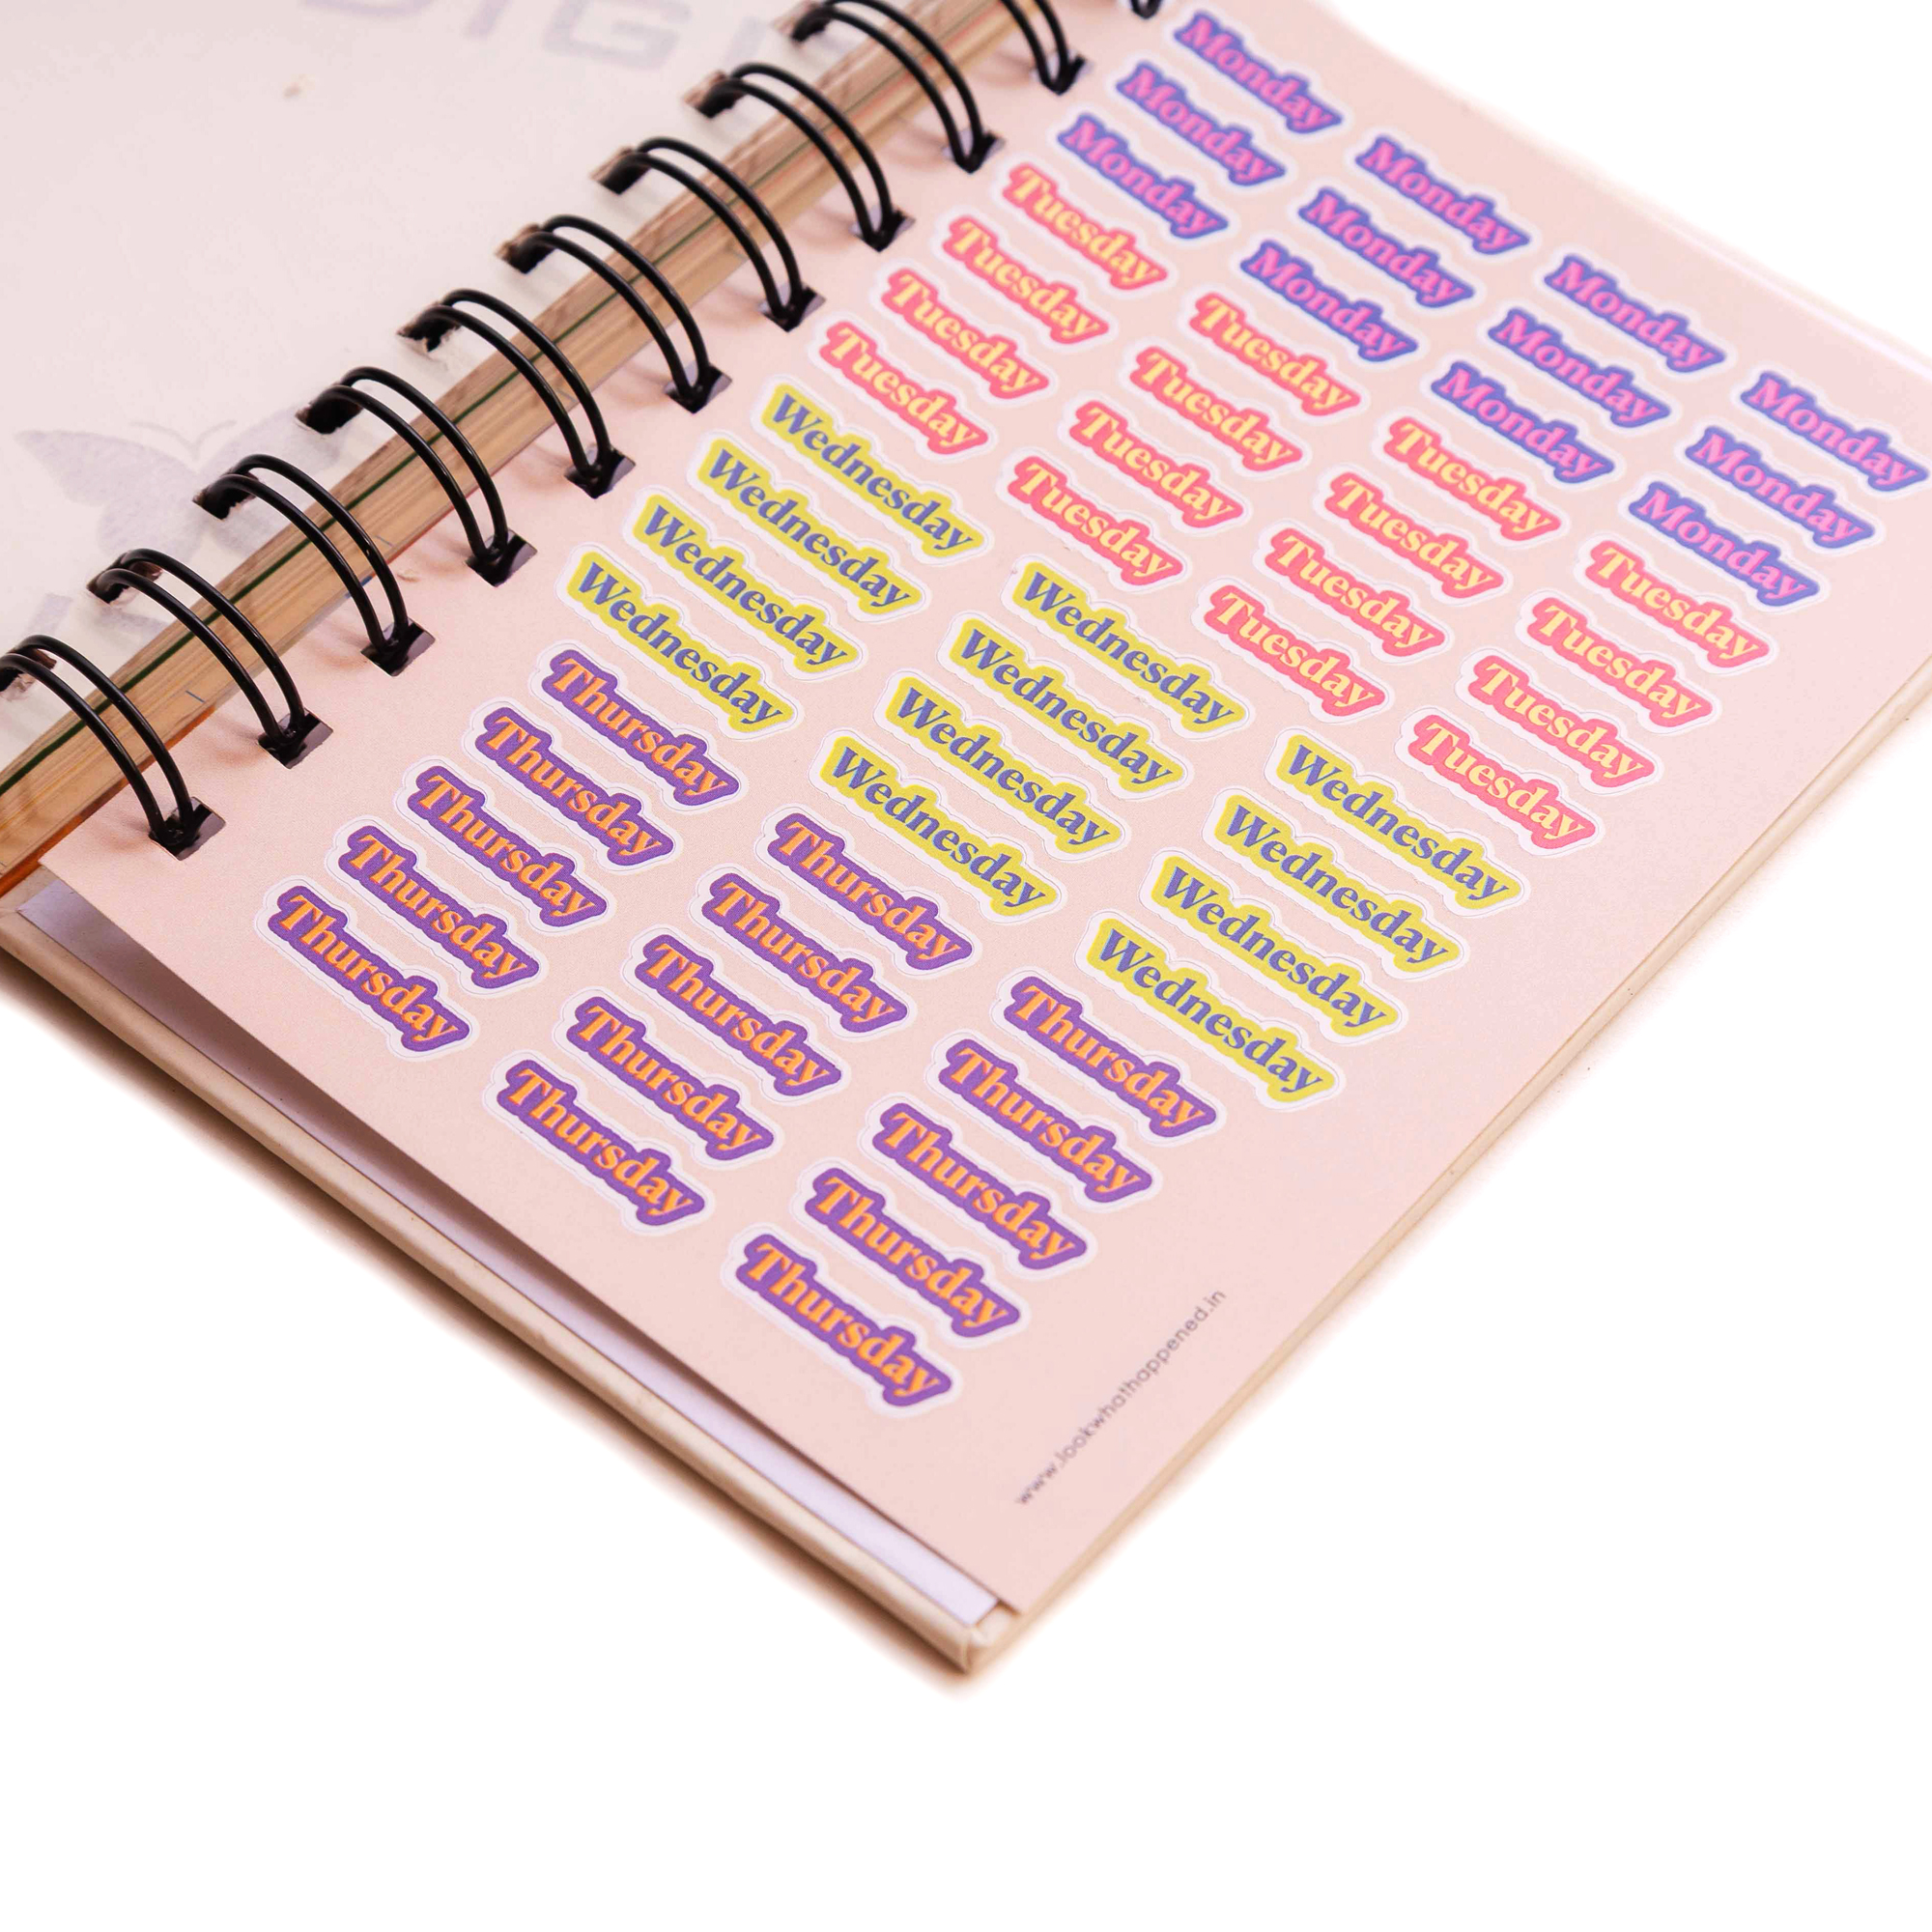 Monday Monday Monday Monday
Monday Monday Monday Monday
Monday Monday Monday Monday
Tuesday Tuesday Tuesday Tuesday
Tuesday Tuesday Tuesday Tuesday
Tuesday Tuesday Tuesday Tuesday
Tuesday Tuesday Tuesday Tuesday
Wednesday Wednesday Wednesday
Wednesday Wednesday Wednesday
Wednesday Wednesday Wednesday
Wednesday Wednesday Wednesday
Thursday Thursday Thursday
Thursday Thursday Thursday
Thursday Thursday Thursday
Thursday Thursday Thursday
Thursday Thursday Thursday
www.lookwhathappened.in